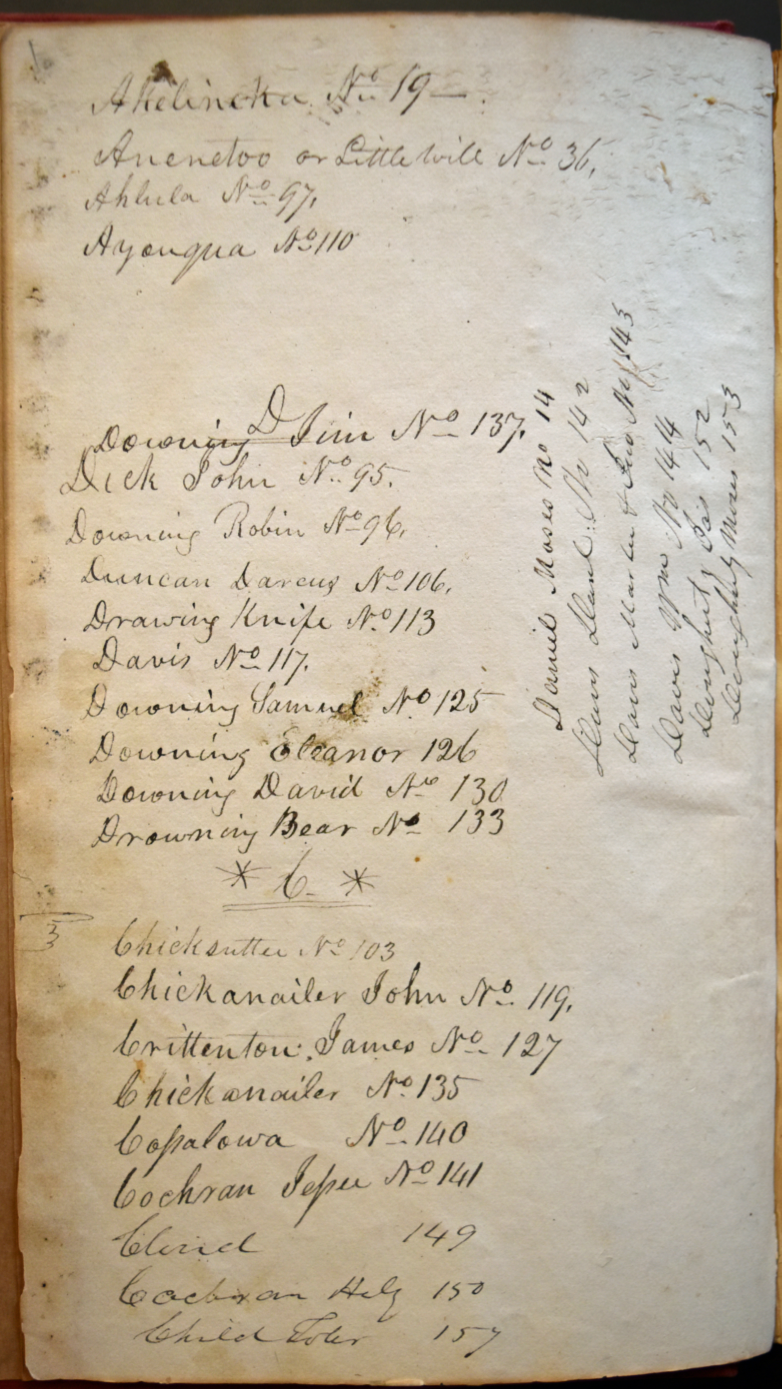 Akelineka No. 19 —.
Anenetoo or Little Will No. 36.
Ahlula No. 97.
Ayougua No. 110
D
Downing Jim No. 137.
Dick John No. 95.
Downing Robin No. 96.
Duncan Darcus No. 106.
Drawing Knife No. 113
Davis No. 117.
Downing Samuel No. 125
Downing Eleanor 126
Downing David No. 130
Drowning Bear No. 133
* C. *
3
Chicksuttee No. 103
Chickanailer John No. 119.
Crittenton. James No. 127
Chickanailer No. 135
Copalowa No. 140
Cochran Jessee No. 141
149
Cochran 150
Child 157
Daniel Moses No 14
Davis Danl. No 142
Davis Martin & No 143
Davis Wm No 144
Doughuty Jas 152
Doughuty Moses 153